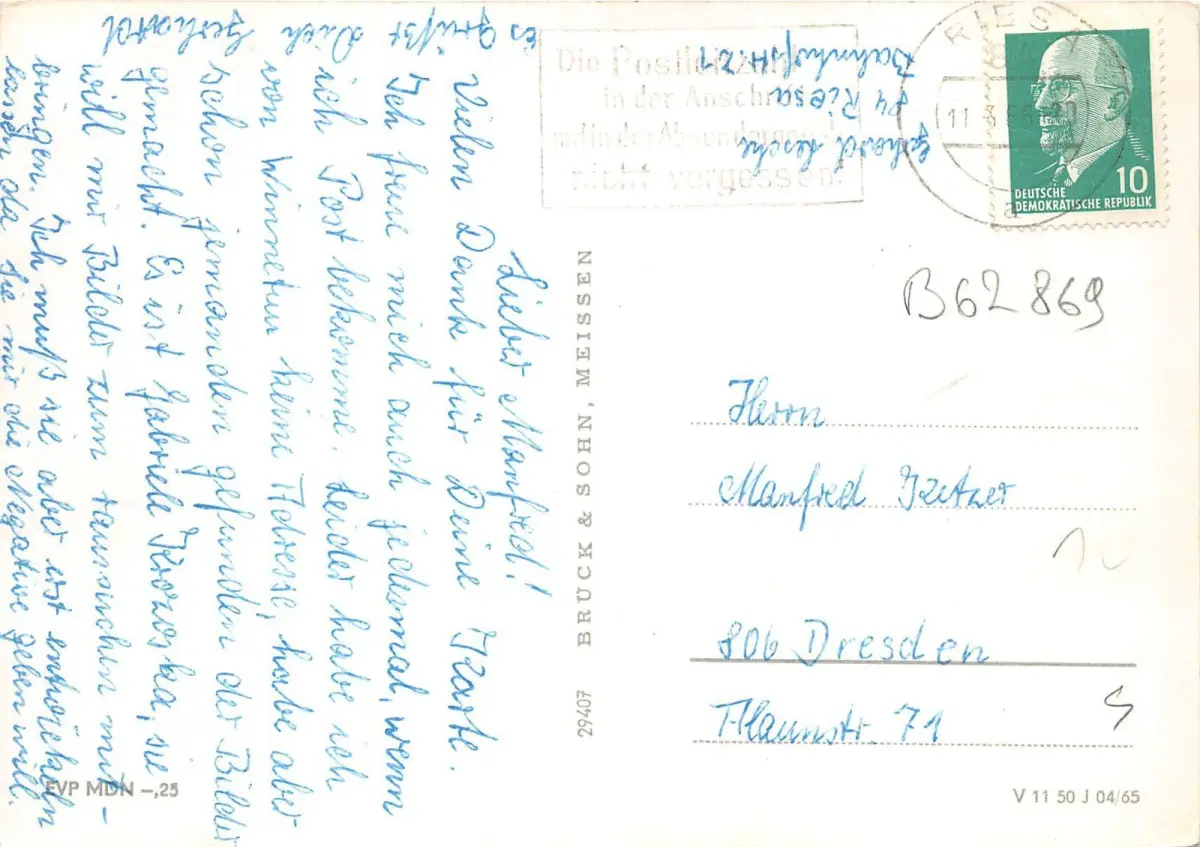 Lieber Manfred!
Vielen Dank für Deine Karte.
Ich freue mich auch jedesmal, wenn
ich Post bekomme. Leider habe ich
von Winnetou keine Adresse, habe aber
schon jemanden gefunden der Bilder
gemacht. Es ist Gabriele, sie
will mir Bilder zum tauschen mit-
bringen. Ich muß sie aber erst entwickeln
lassen da sie mir die Negative geben will.
Es grüßt Dich
Gerhard
Die Postleitzahl
in der Anschrift
und in der Absenderangabe
nicht vergessen!
Gerhard
84 Riesa
Bahnhofstr. 21
RIESA
11
66
a
DEUTSCHE
DEMOKRATISCHE REPUBLIK
10
B62869
Herrn
Manfred Kretzer
806 Dresden
Alaunstr. 71
29407 BRUCK & SOHN, MEISSEN
EVP MDN –,25
V 11 50 J 04/65